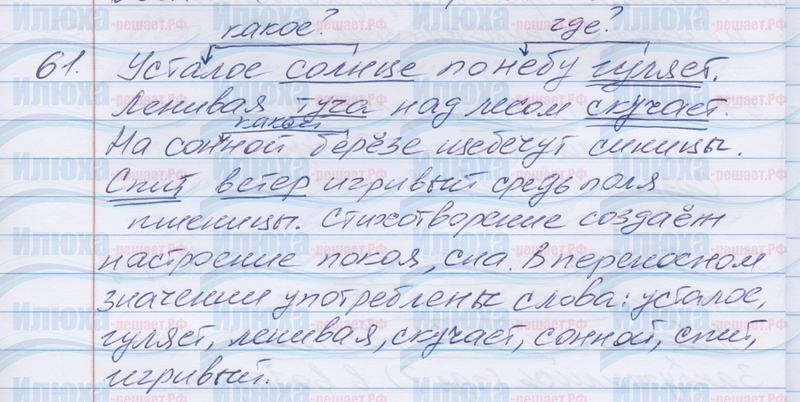 какое? где?
61. Усталое солнце по небу гуляет.
Ленивая туча над лесом скучает.
какой?
На сонной берёзе щебечут синицы.
Спит ветер игривый средь поля
пшеницы. Стихотворение создаёт
настроение покоя, сна. В переносном
значении употреблены слова: усталое,
гуляет, ленивая, скучает, сонной, спит,
игривый.